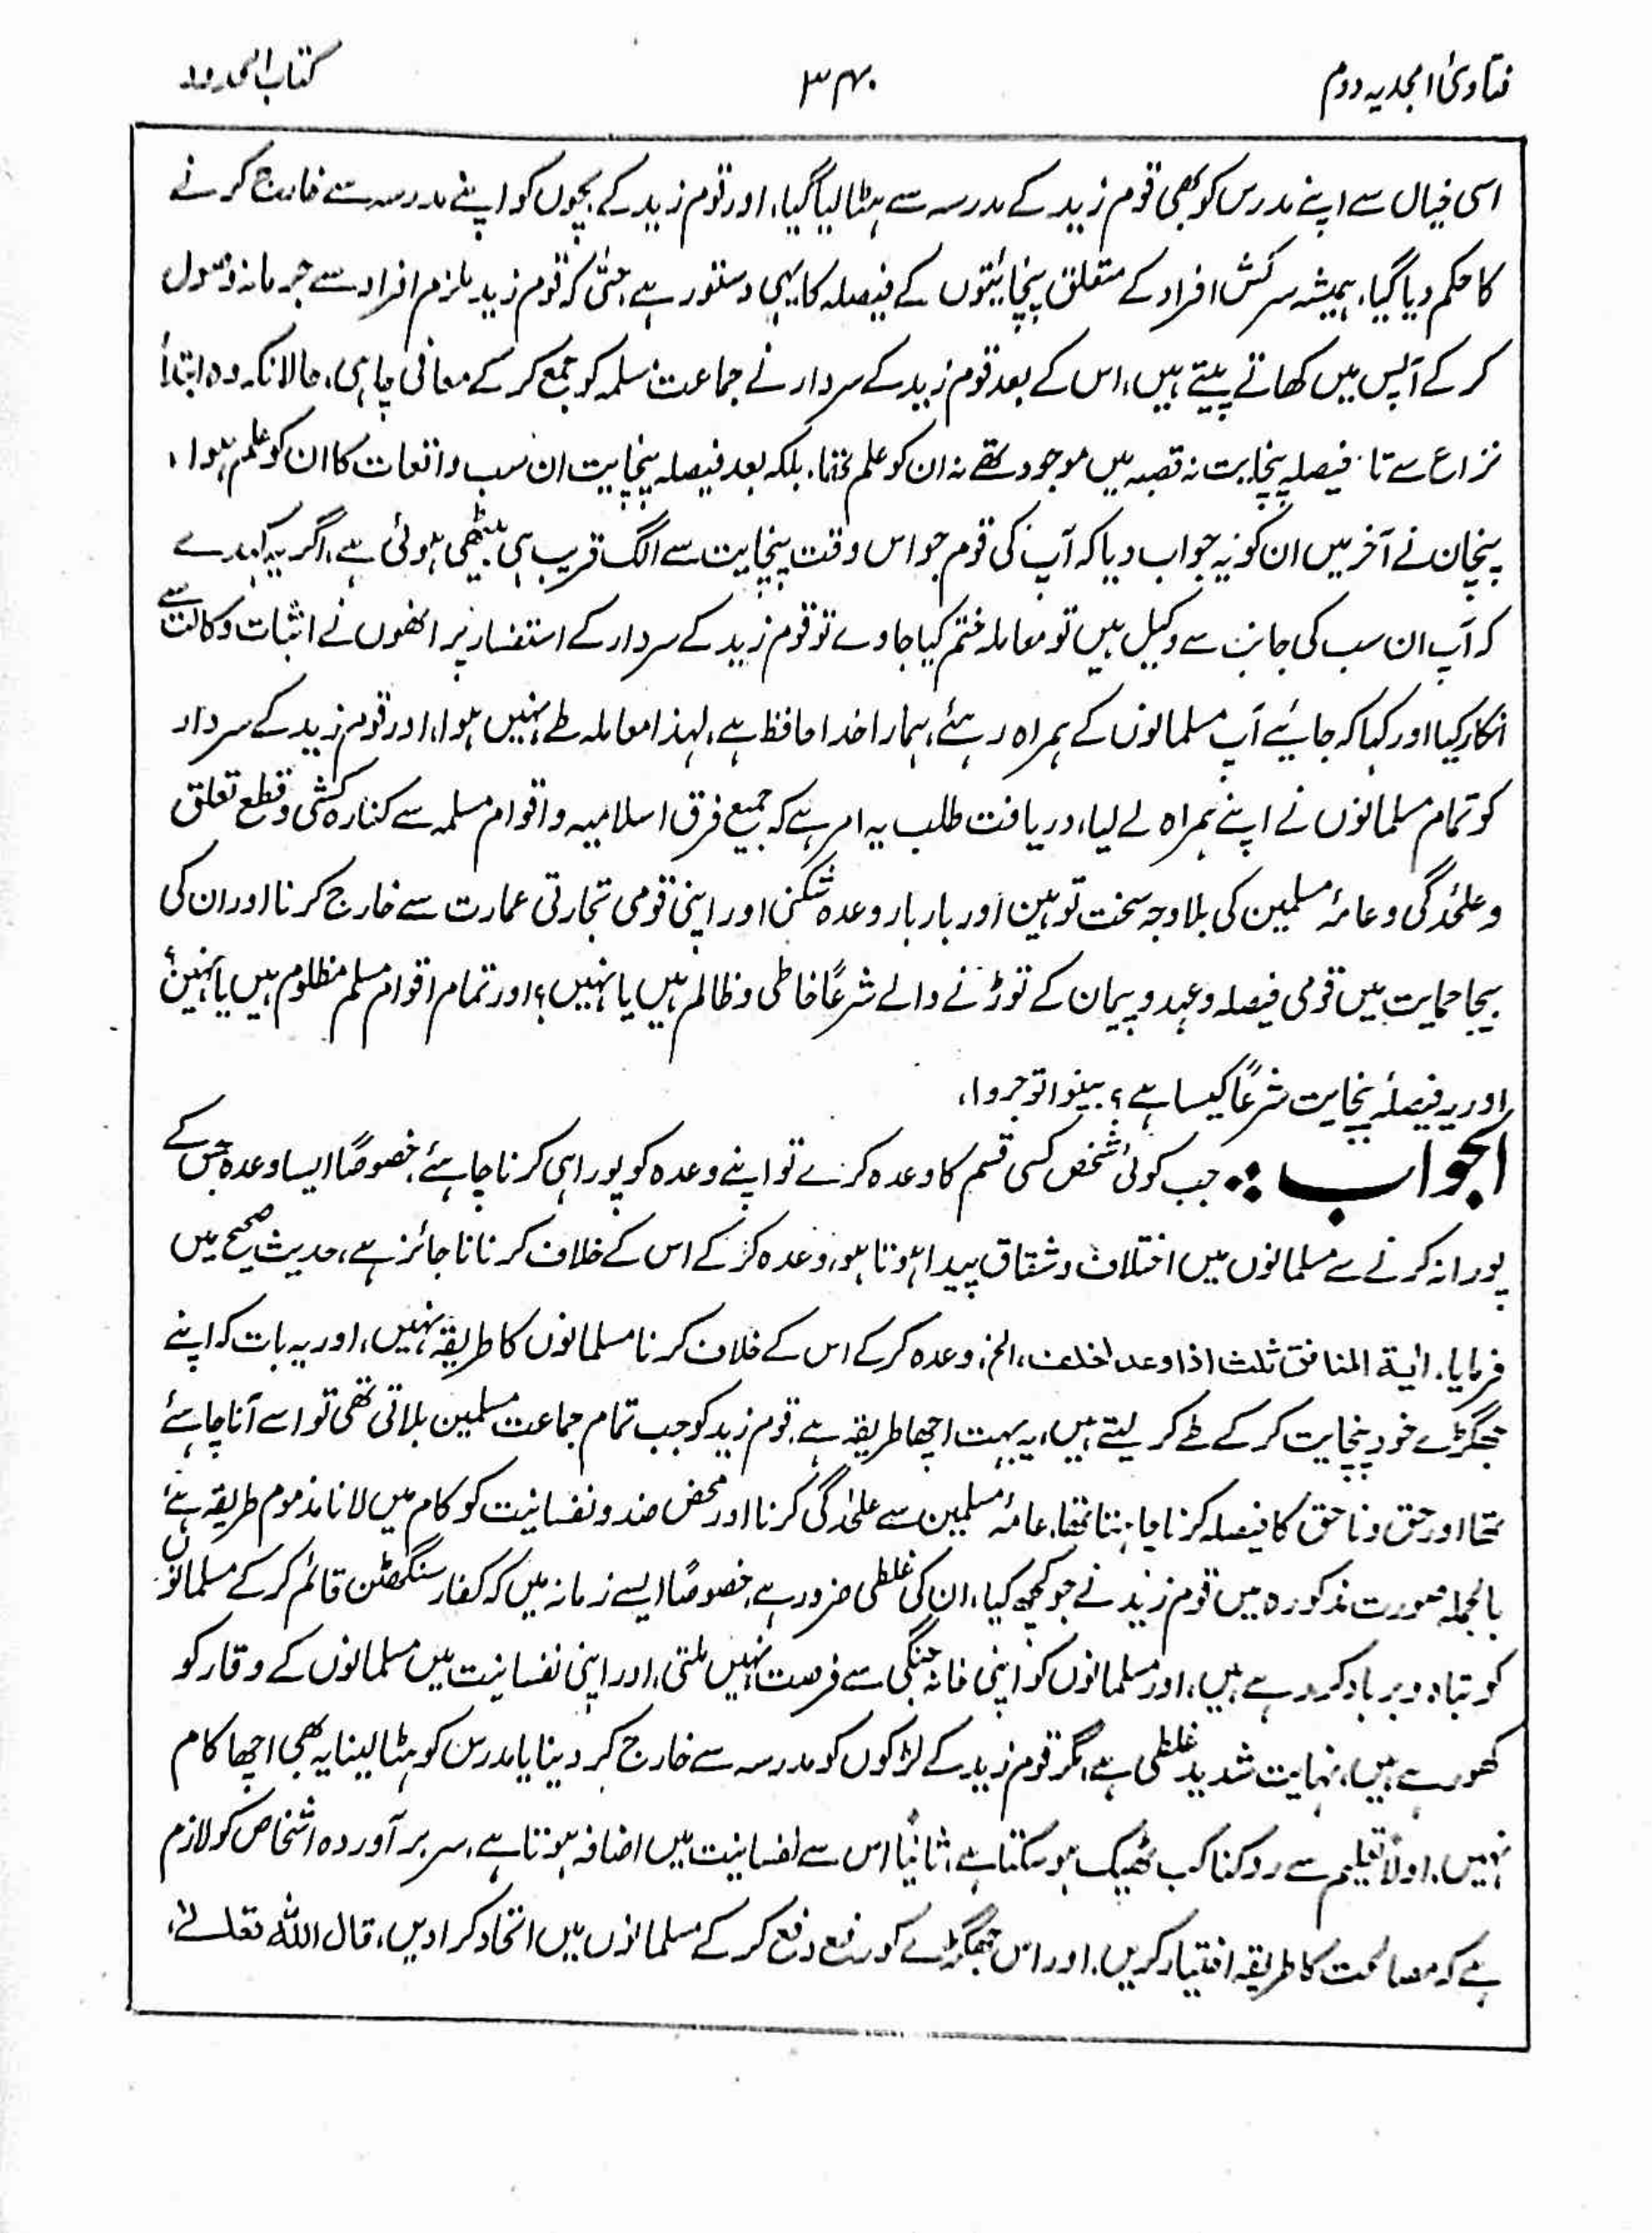 فتاویٰ امجدیہ دوم
۳۴۰
کتاب الحدود
اسی خیال سے اپنے مدرس کو بھی قوم زید کے مدرسہ سے ہٹا لیا گیا، اور قوم زید کے بچوں کو اپنے مدرسہ سے خارج کرنے
کا حکم دیا گیا، ہمیشہ سرکش افراد کے متعلق پنچایتوں کے فیصلہ کا یہی دستور ہے، حتیٰ کہ قوم زید ملزم افراد سے جرمانہ وصول
کر کے آپس میں کھاتے پیتے ہیں، اس کے بعد قوم زید کے سردار نے جماعت مسلمہ کو جمع کر کے معافی چاہی، حالانکہ وہ ابتداً
نزاع سے تا فیصلہ پنچایت نہ قصبہ میں موجود تھے نہ ان کو علم تھا، بلکہ بعد فیصلہ پنچایت ان سب واقعات کا ان کو علم ہوا،
پنچان نے آخر میں ان کو یہ جواب دیا کہ آپ کی قوم جو اس وقت پنچایت سے الگ قریب ہی بیٹھی ہوئی ہے، اگر یہ کہدے
کہ آپ ان سب کی جانب سے وکیل ہیں تو معاملہ ختم کیا جاوے تو قوم زید کے سردار کے استفسار پر انھوں نے اثبات وکالت سے
انکار کیا اور کہا کہ جائیے آپ مسلمانوں کے ہمراہ رہئے، ہمارا خدا حافظ ہے، لہذا معاملہ طے نہیں ہوا، اور قوم زید کے سردار
کو تمام مسلمانوں نے اپنے ہمراہ لے لیا، دریافت طلب یہ امر ہے کہ جمیع فرق اسلامیہ و اقوام مسلمہ سے کنارہ کشی و قطع تعلق
و علٰحدگی و عامۂ مسلمین کی بلاوجہ سخت توہین اور بار بار وعدہ شکنی اور اپنی قومی تجارتی عمارت سے خارج کرنا اور ان کی
بیجا حمایت میں قومی فیصلہ و عہد و پیمان کے توڑنے والے شرعًا خاطی و ظالم ہیں یا نہیں؟ اور تمام اقوام مسلم مظلوم ہیں یا نہیں؟
اور یہ فیصلۂ پنچایت شرعًا کیسا ہے؟ بینوا توجروا،
الجواب :۔ جب کوئی شخص کسی قسم کا وعدہ کرے تو اپنے وعدہ کو پورا ہی کرنا چاہئے، خصوصًا ایسا وعدہ جس کے
پورا نہ کرنے سے مسلمانوں میں اختلاف و شقاق پیدا ہوتا ہو، وعدہ کر کے اس کے خلاف کرنا ناجائز ہے، حدیث صحیح میں
فرمایا، اٰیة المنافق ثلث اذا وعد اخلف، الخ، وعدہ کر کے اس کے خلاف کرنا مسلمانوں کا طریقہ نہیں، اور یہ بات کہ اپنے
جھگڑے خود پنچایت کر کے طے کر لیتے ہیں، یہ بہت اچھا طریقہ ہے، قوم زید کو جب تمام جماعت مسلمین بلاتی تھی تو اسے آنا چاہئے
تھا اور حق و ناحق کا فیصلہ کرنا چاہئتا تھا، عامۂ مسلمین سے علٰحدگی کرنا اور محض ضد و نفسانیت کو کام میں لانا مذموم طریقہ ہے،
بالجملہ صورت مذکورہ میں قوم زید نے جو کچھ کیا، ان کی غلطی ضرور ہے، خصوصًا ایسے زمانہ میں کہ کفار سنگھٹن قائم کر کے مسلمانوں
کو تباہ و برباد کر رہے ہیں، اور مسلمانوں کو اپنی خانہ جنگی سے فرصت نہیں ملتی، اور اپنی نفسانیت میں مسلمانوں کے وقار کو
کھو رہے ہیں، نہایت شدید غلطی ہے، مگر قوم زید کے لڑکوں کو مدرسہ سے خارج کر دینا یا مدرس کو ہٹا لینا یہ بھی اچھا کام
نہیں، اولًا تعلیم سے روکنا کب ٹھیک ہو سکتا ہے، ثانیًا اس سے نفسانیت میں اضافہ ہوتا ہے، سر برآوردہ اشخاص کو لازم
ہے کہ مصالحت کا طریقہ اختیار کریں، اور اس جھگڑے کو رفع دفع کر کے مسلمانوں میں اتحاد کرا دیں، قال اللہ تعالےٰ،